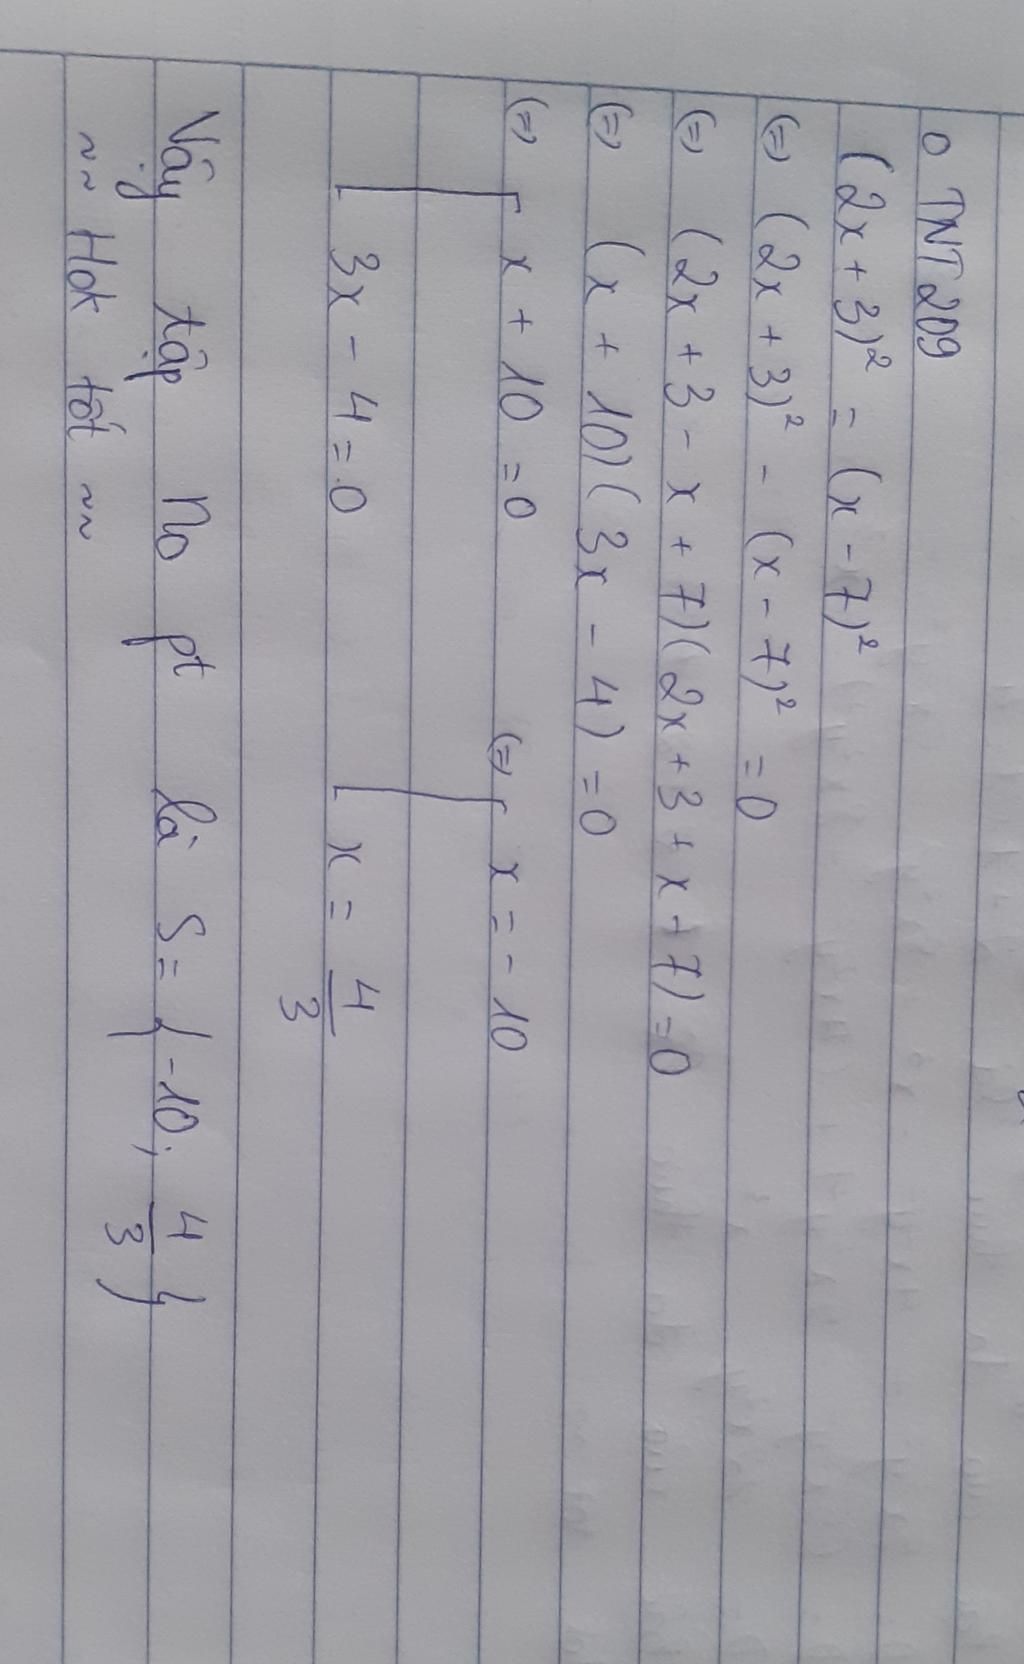 o TNT 209
(2x + 3)² = (x - 7)²
(=) (2x + 3)² - (x - 7)² = 0
(=) (2x + 3 - x + 7)(2x + 3 + x + 7) = 0
(=) (x + 10)(3x - 4) = 0
(=) [ x + 10 = 0 (=) [ x = - 10
3x - 4 = 0 x = 4/3
Vậy tập no pt là S = { -10; 4/3 }
~~ Hok tốt ~~